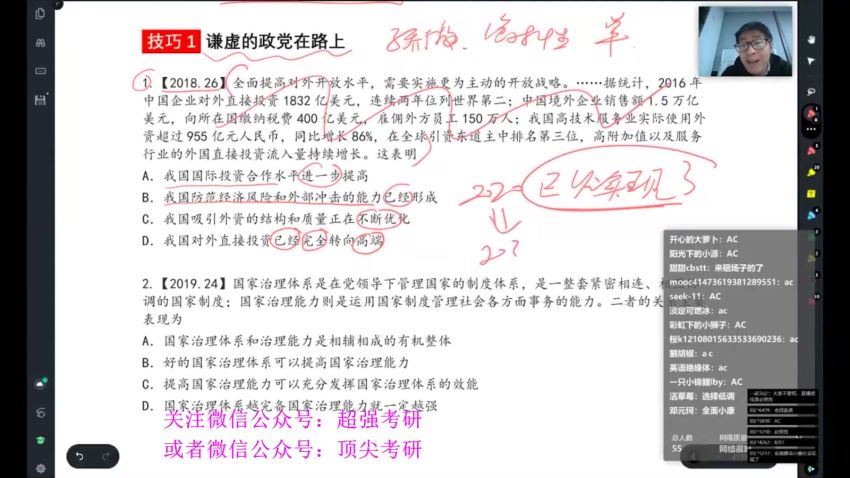 技巧 1 谦虚的政党在路上
1.【2018.26】全面提高对外开放水平，需要实施更为主动的开放战略。……据统计，2016 年
中国企业对外直接投资 1832 亿美元，连续两年位列世界第二；中国境外企业销售额 1.5 万亿
美元，向所在国缴纳税费 400 亿美元，雇佣外方员工 150 万人；我国高技术服务业实际使用外
资超过 955 亿元人民币，同比增长 86%，在全球引资东道主中排名第三位，高附加值以及服务
行业的外国直接投资流入量持续增长。这表明
A．我国国际投资合作水平进一步提高
B．我国防范经济风险和外部冲击的能力已经形成
C．我国吸引外资的结构和质量正在不断优化
D．我国对外直接投资已经完全转向高端
已经实现了
2.【2019.24】国家治理体系是在党领导下管理国家的制度体系，是一整套紧密相连、相
调的国家制度；国家治理能力则是运用国家制度管理社会各方面事务的能力。二者的关系主要
表现为
A．国家治理体系和治理能力是相辅相成的有机整体
B．好的国家治理体系可以提高国家治理能力
C．提高国家治理能力可以充分发挥国家治理体系的效能
D．国家治理体系越完备国家治理能力就一定越强
关注微信公众号：超强考研
或者微信公众号：顶尖考研
开心的大萝卜：AC
阳光下的小源：AC
甜甜cbstt：来砸场子的了
mooc41473619381289551：ac
seek-11：AC
淡定可燃冰：ac
彩虹下的小狮子：AC
桉k1210801563353369​0236：ac
翻胡椒：a c
英语绝缘体：ac
一只小锦鲤lby：AC
活草莓：选择低调
邓元珂：全面小康
总人数
55
网络质量